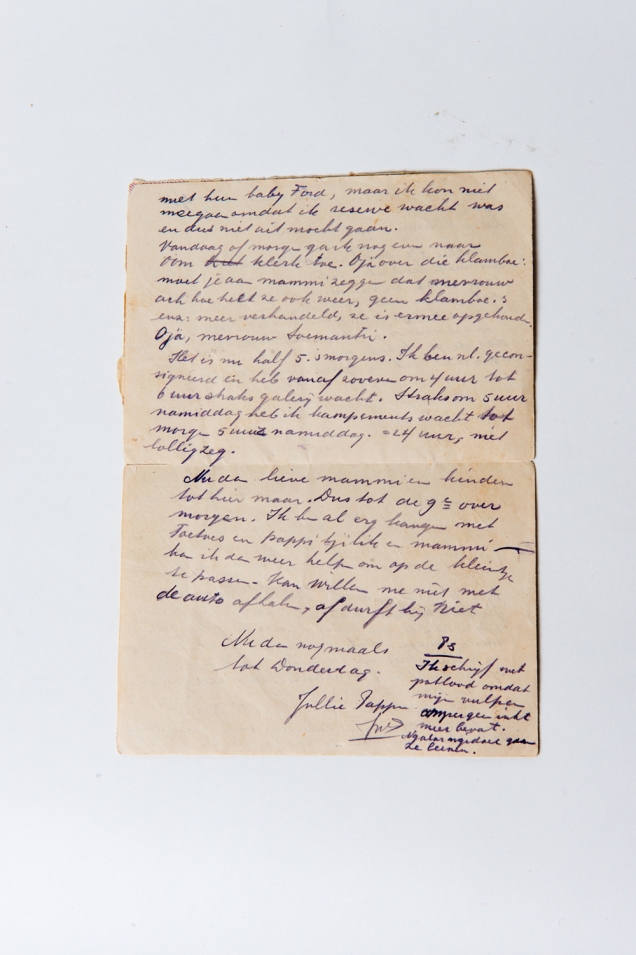 met hun baby Ford, maar ik kon niet
meegaan omdat ik reserve wacht was
en dus niet uit mocht gaan.
Vandaag of morge ga ik nog even naar
Oom klerk toe. Oja over die klamboe:
moet je aan mammi zeggen dat mevrouw
ach hoe heet ze ook weer, geen klamboe's
enz: meer verhandeld, ze is ermee opgehouden.
Oja, mevrouw Soemantri.
Het is nu half 5. smorgens. Ik ben nl. gecon-
signeerd en heb vanaf zoveren om 4 uur tot
6 uur galerij wacht. Straks om 5 uur
namiddag heb ik kampements wacht tot
morge 5 uur namiddag. = 24 uur, niet
lollig zeg.
Nu dan lieve mammi en kinderen
tot hier maar. Dus tot de 9e over
morgen. Ik ben al erg bangen met
Toetoes en pappi tjilik en mammi
kan ik dan weer helpen om op de kleintje
te passen. Kan Willem me niet met
de auto afhalen, of durft hij niet
Nu dan nogmaals
tot Donderdag.
Jullie Pappi
Ps
Ik schrijf met
potlood omdat
mijn vulpen
inkt
meer bevat.
gaan
te leenen.